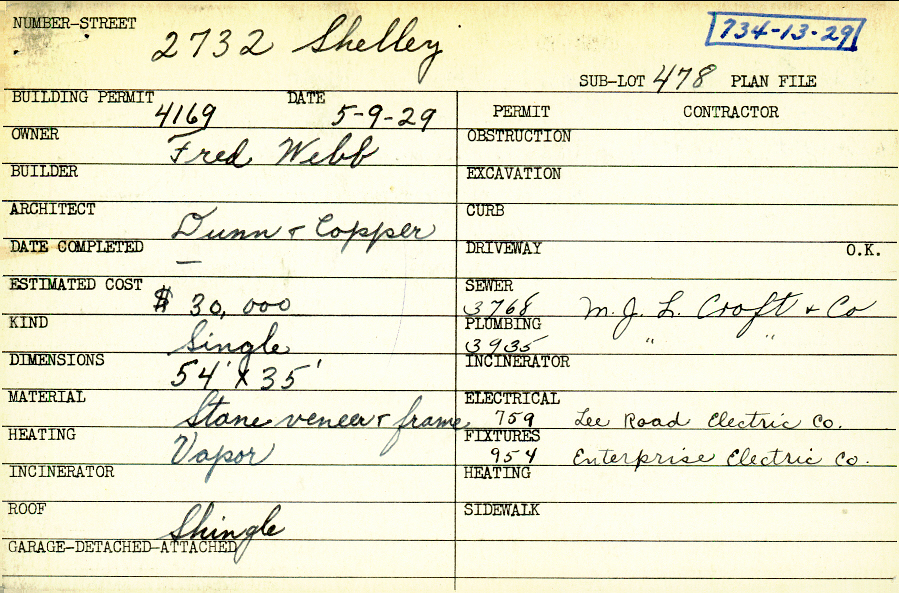 NUMBER-STREET
2732 Shelley
734-13-29
SUB-LOT 478 PLAN FILE
BUILDING PERMIT 4169 DATE 5-9-29
OWNER Fred Webb
BUILDER
ARCHITECT Dunn + Copper
DATE COMPLETED —
ESTIMATED COST $ 30,000
KIND Single
DIMENSIONS 54' X 35'
MATERIAL Stone veneer + frame
HEATING Vapor
INCINERATOR
ROOF Shingle
GARAGE-DETACHED-ATTACHED
PERMIT CONTRACTOR
OBSTRUCTION
EXCAVATION
CURB
DRIVEWAY O.K.
SEWER
3768 M. J. L. Croft + Co
PLUMBING
3935 " "
INCINERATOR
ELECTRICAL
759 Lee Road Electric Co.
FIXTURES
954 Enterprise Electric Co.
HEATING
SIDEWALK